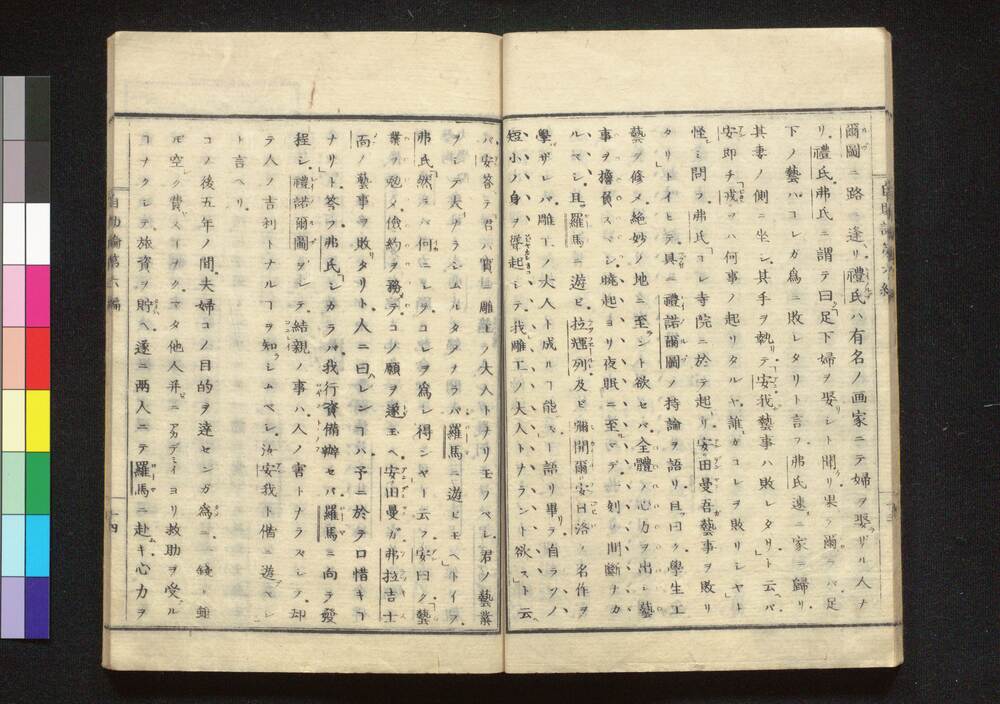 爾圖ニ路ニ逢リ禮氏ハ有名ノ画家ニテ婦ヲ娶ザル人ナ
リ禮氏弗氏ニ謂テ曰足下婦ヲ娶リシト聞リ果乄爾ラバ足
下ノ藝ハコレガ為ニ敗レタリト言フ弗氏速ニ家ニ歸リ
其妻ノ側ニ坐シ其手ヲ執テ安我藝事ハ敗レタリト云バ
安即チ或ハ何事ノ起リタルヤ誰ガコレヲ敗リシヤト
怪ミ問フ弗氏コレ寺院ニ於テ起リ安田曼吾藝事ヲ敗リ
タリトイヒテ具ニ禮諾爾圖ノ持論ヲ語リ且曰ク學生工
藝ヲ修メ絶妙ノ地ニ至ント欲セバ全體ノ心力ヲ出シ藝
事ヲ擔負スベシ曉起ヨリ夜眠ニ至マデ一刻ノ間斷ナカ
ルベシ且羅馬ニ遊ビ拉兙列及ビ彌開爾安日洛ノ名作ヲ
學ザレバ雕工ノ大人ト成ルヿ能ズト語リ畢ヲ自ラソノ
短小ノ身ヲ聳起シテ我雕工ノ大人トナラント欲スト云
バ安答テ君ハ實ニ雕工ノ大人トナリ玉フベシ君ノ藝業
ヲシテ大ナラシムルタメナラバ羅馬ニ遊ビ玉ヘトイフ
弗氏然ラバ何ニシテコレヲ為シ得ンヤト云フ安曰ク藝
業ヲ勉メ儉約ヲ務テコノ願ヲ遂玉ヘ安田曼ガ弗拉吉士
而ノ藝事ヲ敗リタリト人ニ曰レンコハ予ニ於テ口惜キヿ
ナリト答フ弗氏シカラバ我行資備辦セバ羅馬ニ向ヲ發
程シ禮諾爾圖ヲシテ結親ノ事ハ人ノ害トナラズシテ却
テ人ノ吉利トナルヿヲ知シムベシ汝安我ト偕ニ遊ベシ
ト言ヘリ
コノ後五年ノ間夫婦コノ目的ヲ達センガ為ニ一錢ト雖
モ空ク費スヿナクマタ他人并ニアカデミイヨリ救助ヲ受ル
ヿナクシテ旅資ヲ貯ヘ遂ニ両人ニテ羅馬ニ赴キ心力ヲ
自助論第六編
十四